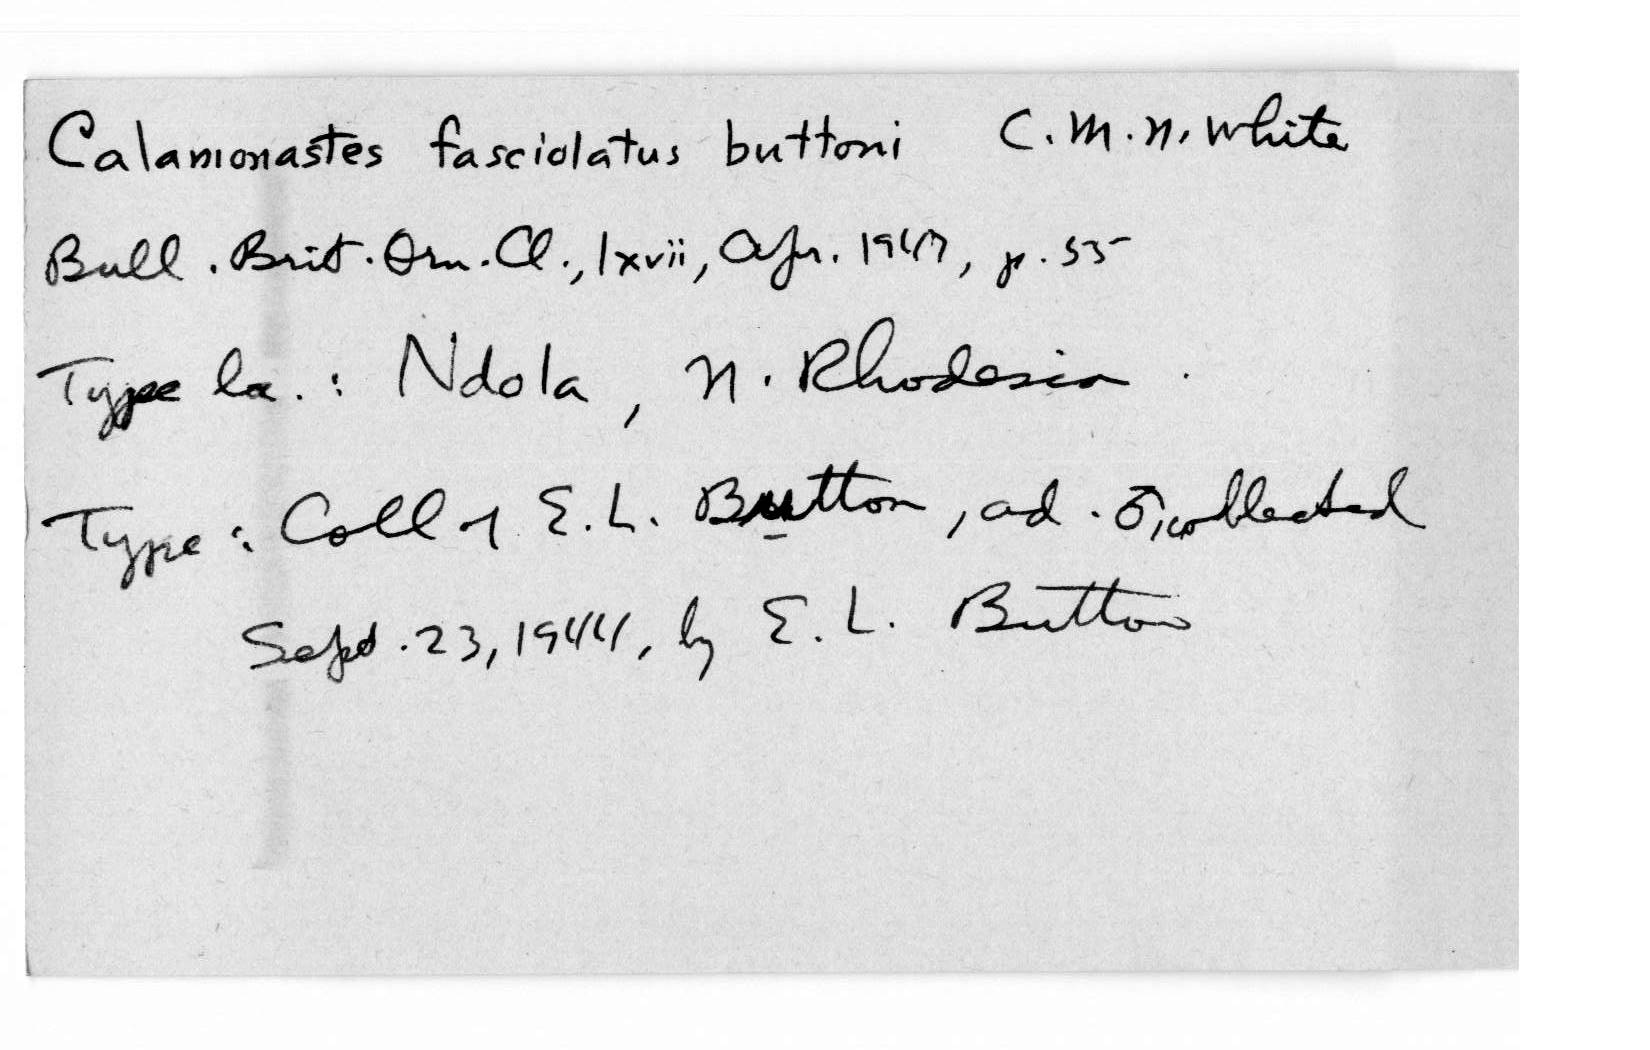 Calamonastes fasciolatus buttoni C.M.N. White
Bull. Brit. Orn. Cl., lxvii, Apr. 1947, p. 55
Type loc. : Ndola, N. Rhodesia.
Type : Coll of E.L. Button, ad. ♂, collected
Sept. 23, 1944, by E.L. Button